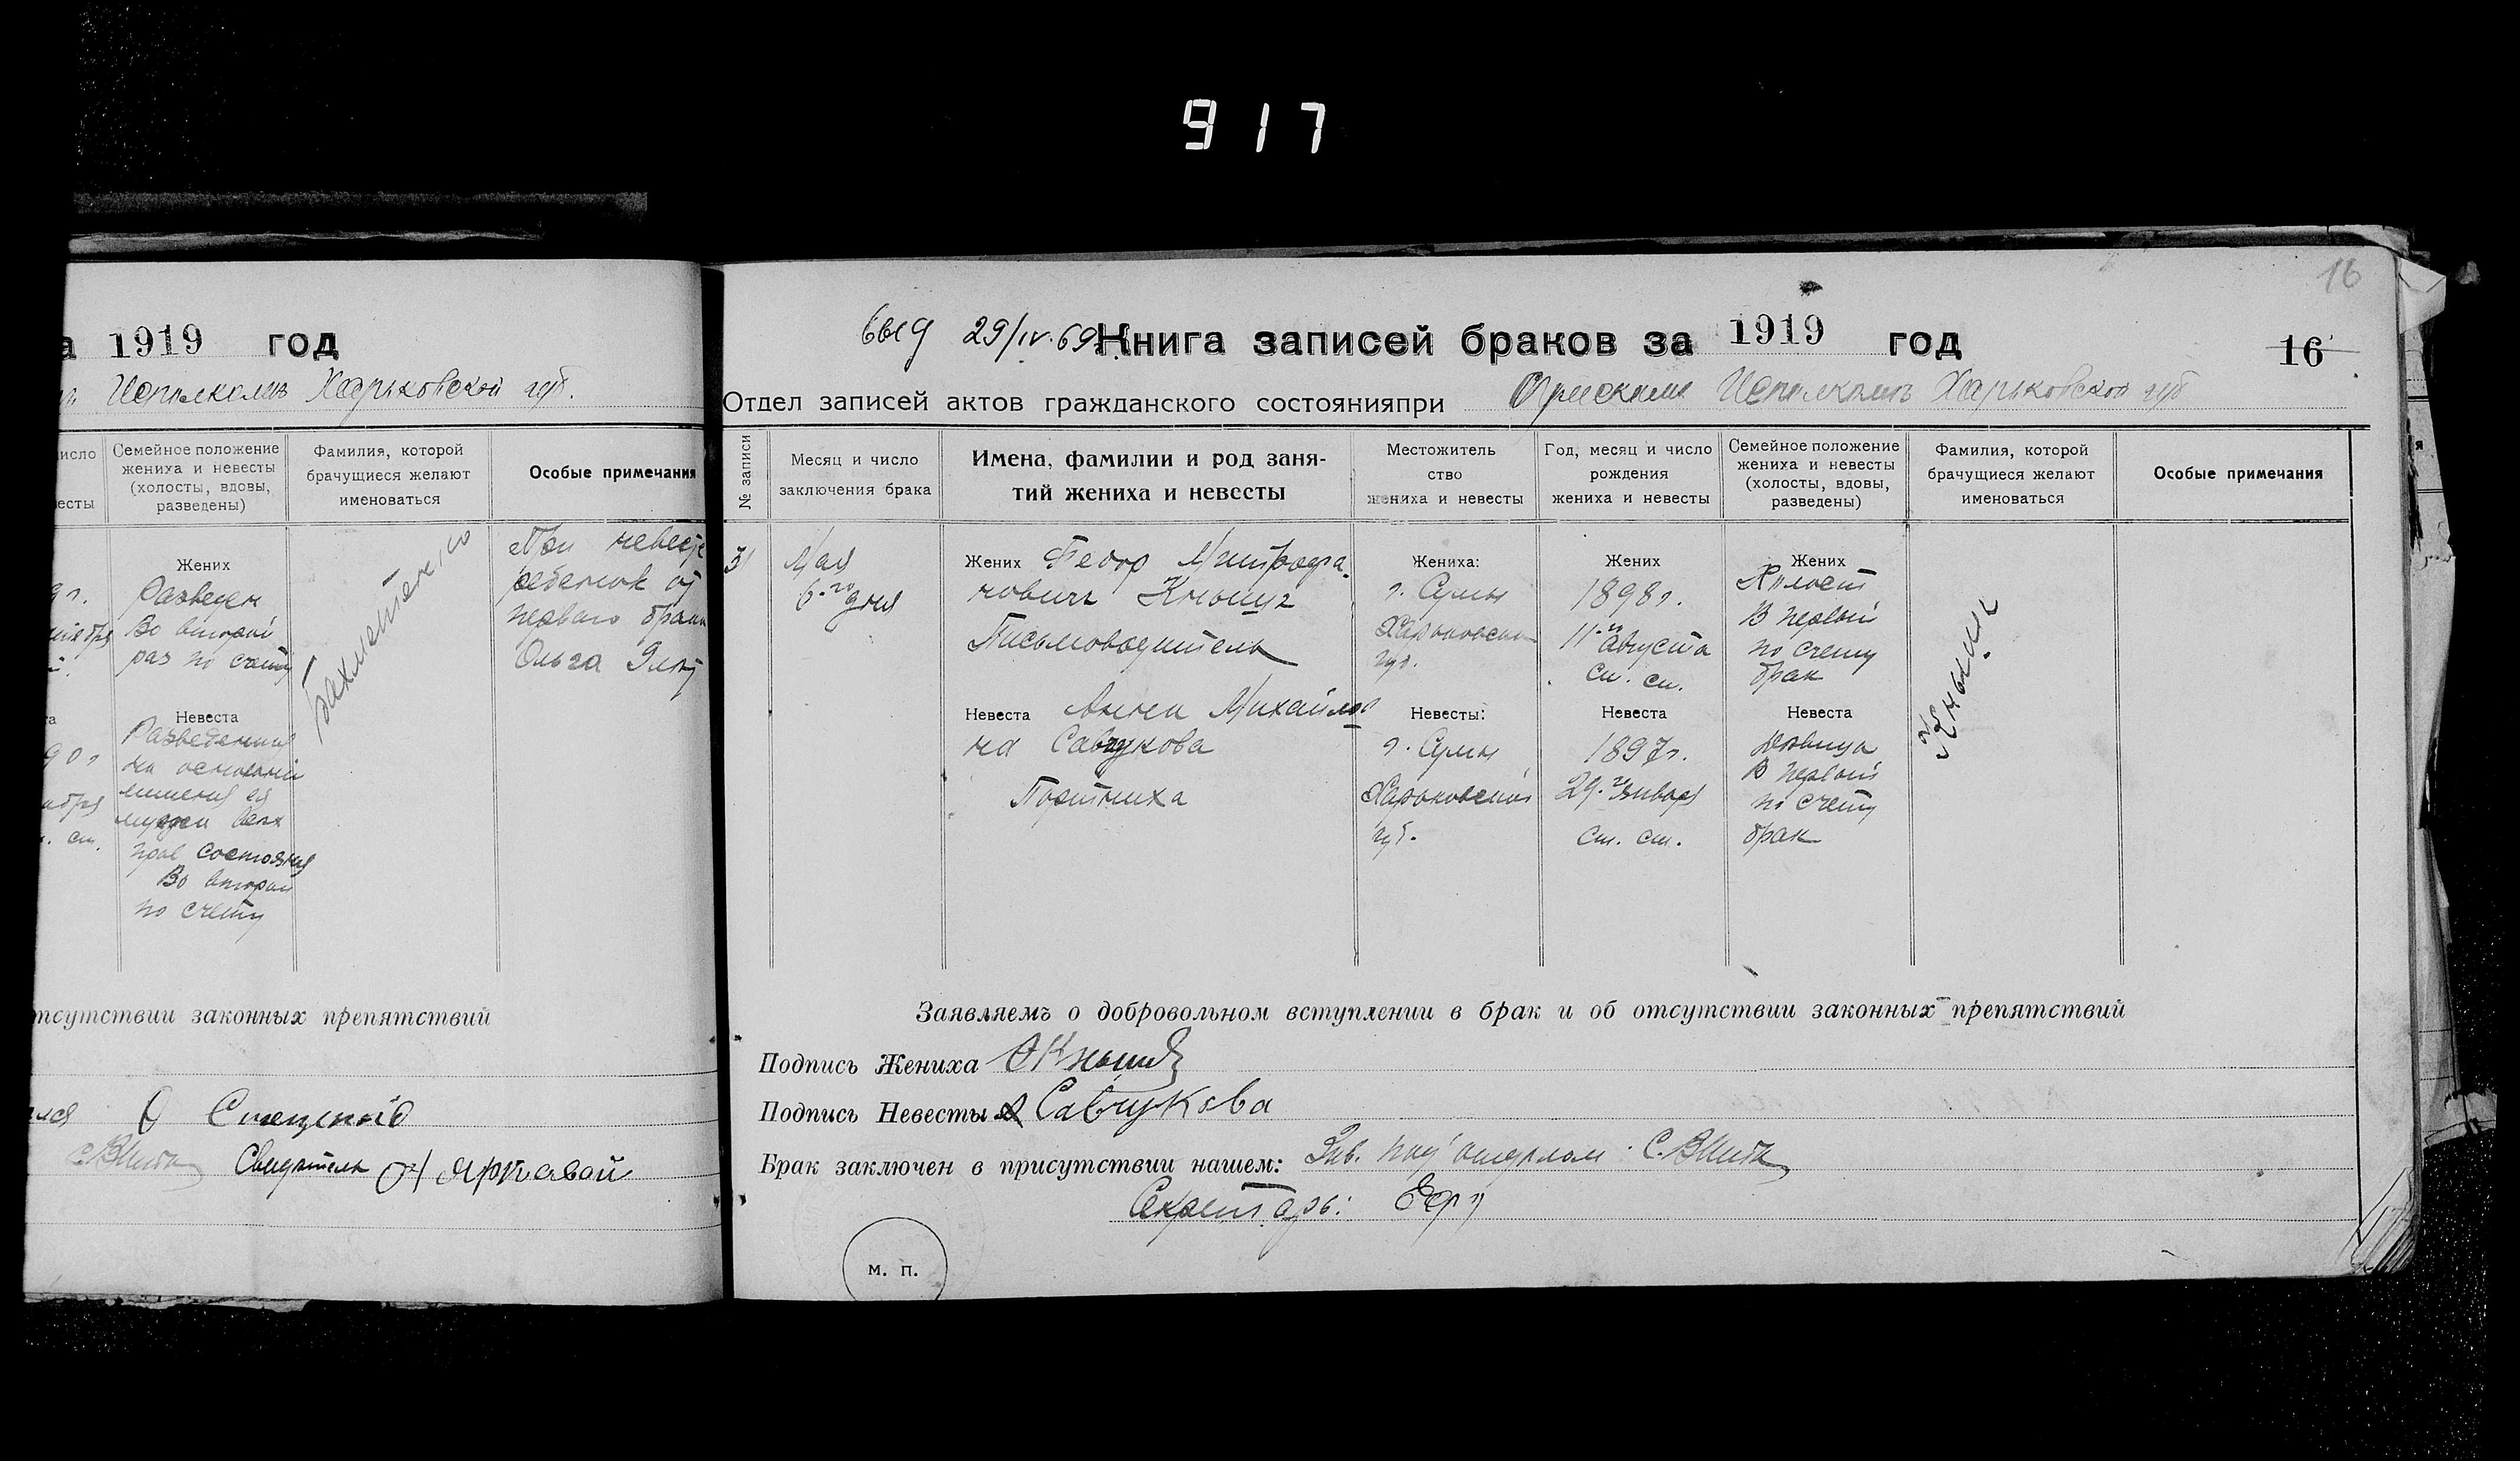 917
а 1919 год
Исполкоме Харьковской губ.
число
весты
Семейное положение
жениха и невесты
(холосты, вдовы,
разведены)
Фамилия, которой
брачущиеся желают
именоваться
Особые примечания
Жених
Разведен
Во второй
раз по счету
При невесте
ребенок от
первого брака
Ольга
Невеста
90 г
ст.
Разведенная
на основании
лишения ея
мужа всех
прав состояния
Во второй
по счету
отсутствии законных препятствий
Свидетель
16
29/IV.69
Книга записей браков за 1919 год
16
Отдел записей актов гражданского состоянияпри Сумском Исполкоме Харьковской губ
№ записи
Месяц и число
заключения брака
Имена, фамилии и род заня-
тий жениха и невесты
Местожитель
ство
жениха и невесты
Год, месяц и число
рождения
жениха и невесты
Семейное положение
жениха и невесты
(холосты, вдовы,
разведены)
Фамилия, которой
брачущиеся желают
именоваться
Особые примечания
31
Мая
6-го дня
Жених Федор Митрофа-
нович Кныш
Письмоводитель
Жениха:
г. Сумы
Харьковской
губ.
Жених
1898 г.
11-го Августа
ст. ст.
Жених
Холост
В первый
по счету
брак
Кныш
Невеста Анна Михайлов
на Савчукова
Портниха
Невесты:
г. Сумы
Харьковской
губ.
Невеста
1897 г.
29-го Января
ст. ст.
Невеста
Девица
В первый
по счету
брак
Заявляемъ о добровольном вступлении в брак и об отсутствии законных препятствий
Подпись Жениха
Подпись Невесты А Савчукова
Брак заключен в присутствии нашем: Зав. под'отделом
Секретарь:
м. п.